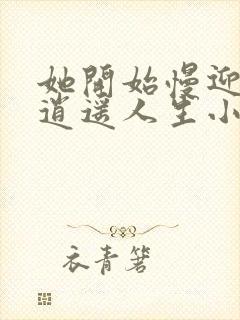 她開始慢迎
逍遥人生小
衣青箬